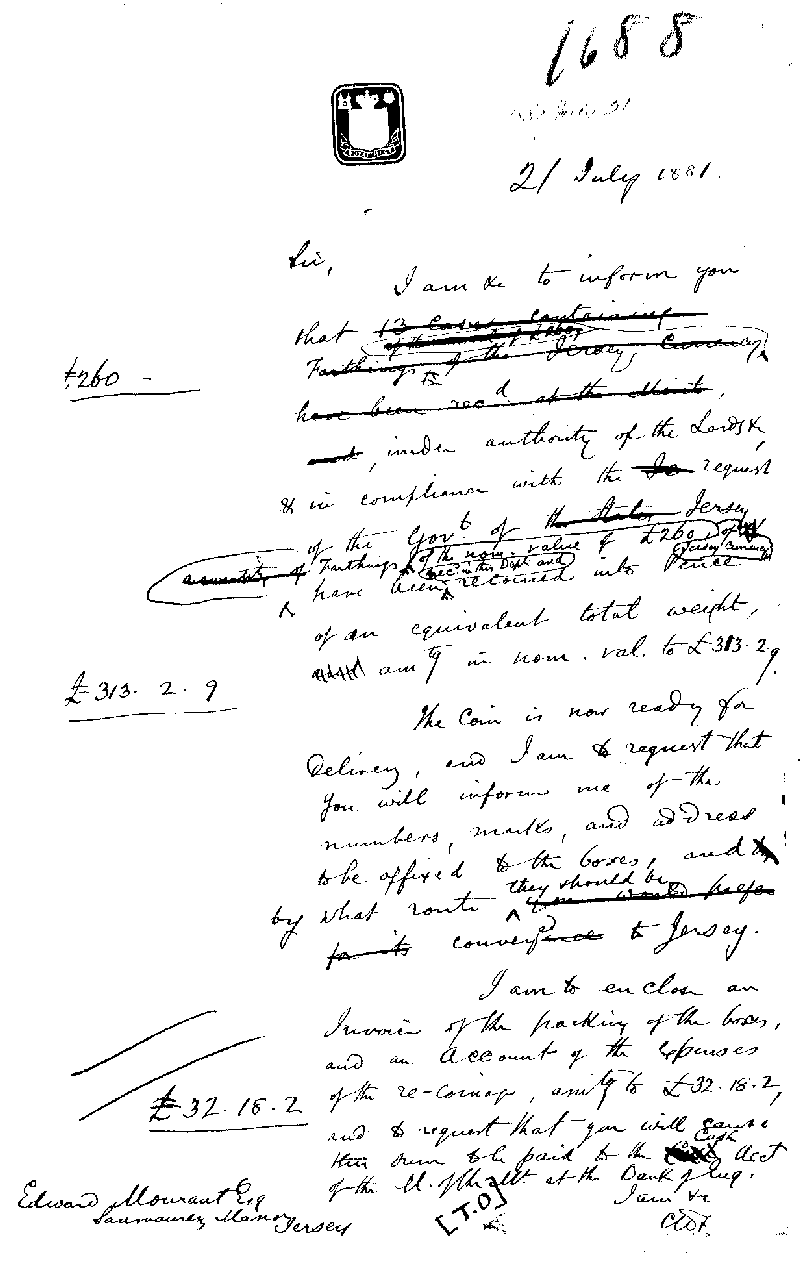 1688
21 July 1881.
Sir,
I am &c to inform you
that 13 cases containing
of the nom. val. of £260
Farthings of the Jersey Currency
£260 -
have been recd at the Mint,
and, under authority of the Lords &c,
& in compliance with the request
of the Govt of the States Jersey
Farthings of the nom. value of £260 of
recd in this Dept and Jersey Currency
have been recoined into Pence
of an equivalent total weight,
amg in nom. val. to £313.2.9.
£313.2.9
The Coin is now ready for
Delivery, and I am to request that
you will inform me of the
numbers, marks, and address
to be affixed to the boxes, and
they should be
by what route you would prefer
for its conveyence to Jersey.
I am to enclose an
Invoice of the packing of the boxes,
and an Account of the Expenses
of the re-coinage, amtg to £32.18.2,
£32.18.2
and to request that you will cause
Cash
this sum to be paid to the Acct
of the M. of the Mt at the Bank of Eng.
I am &c
Edward Mourant Esq
Saumarez Manor
Jersey
[T.O]